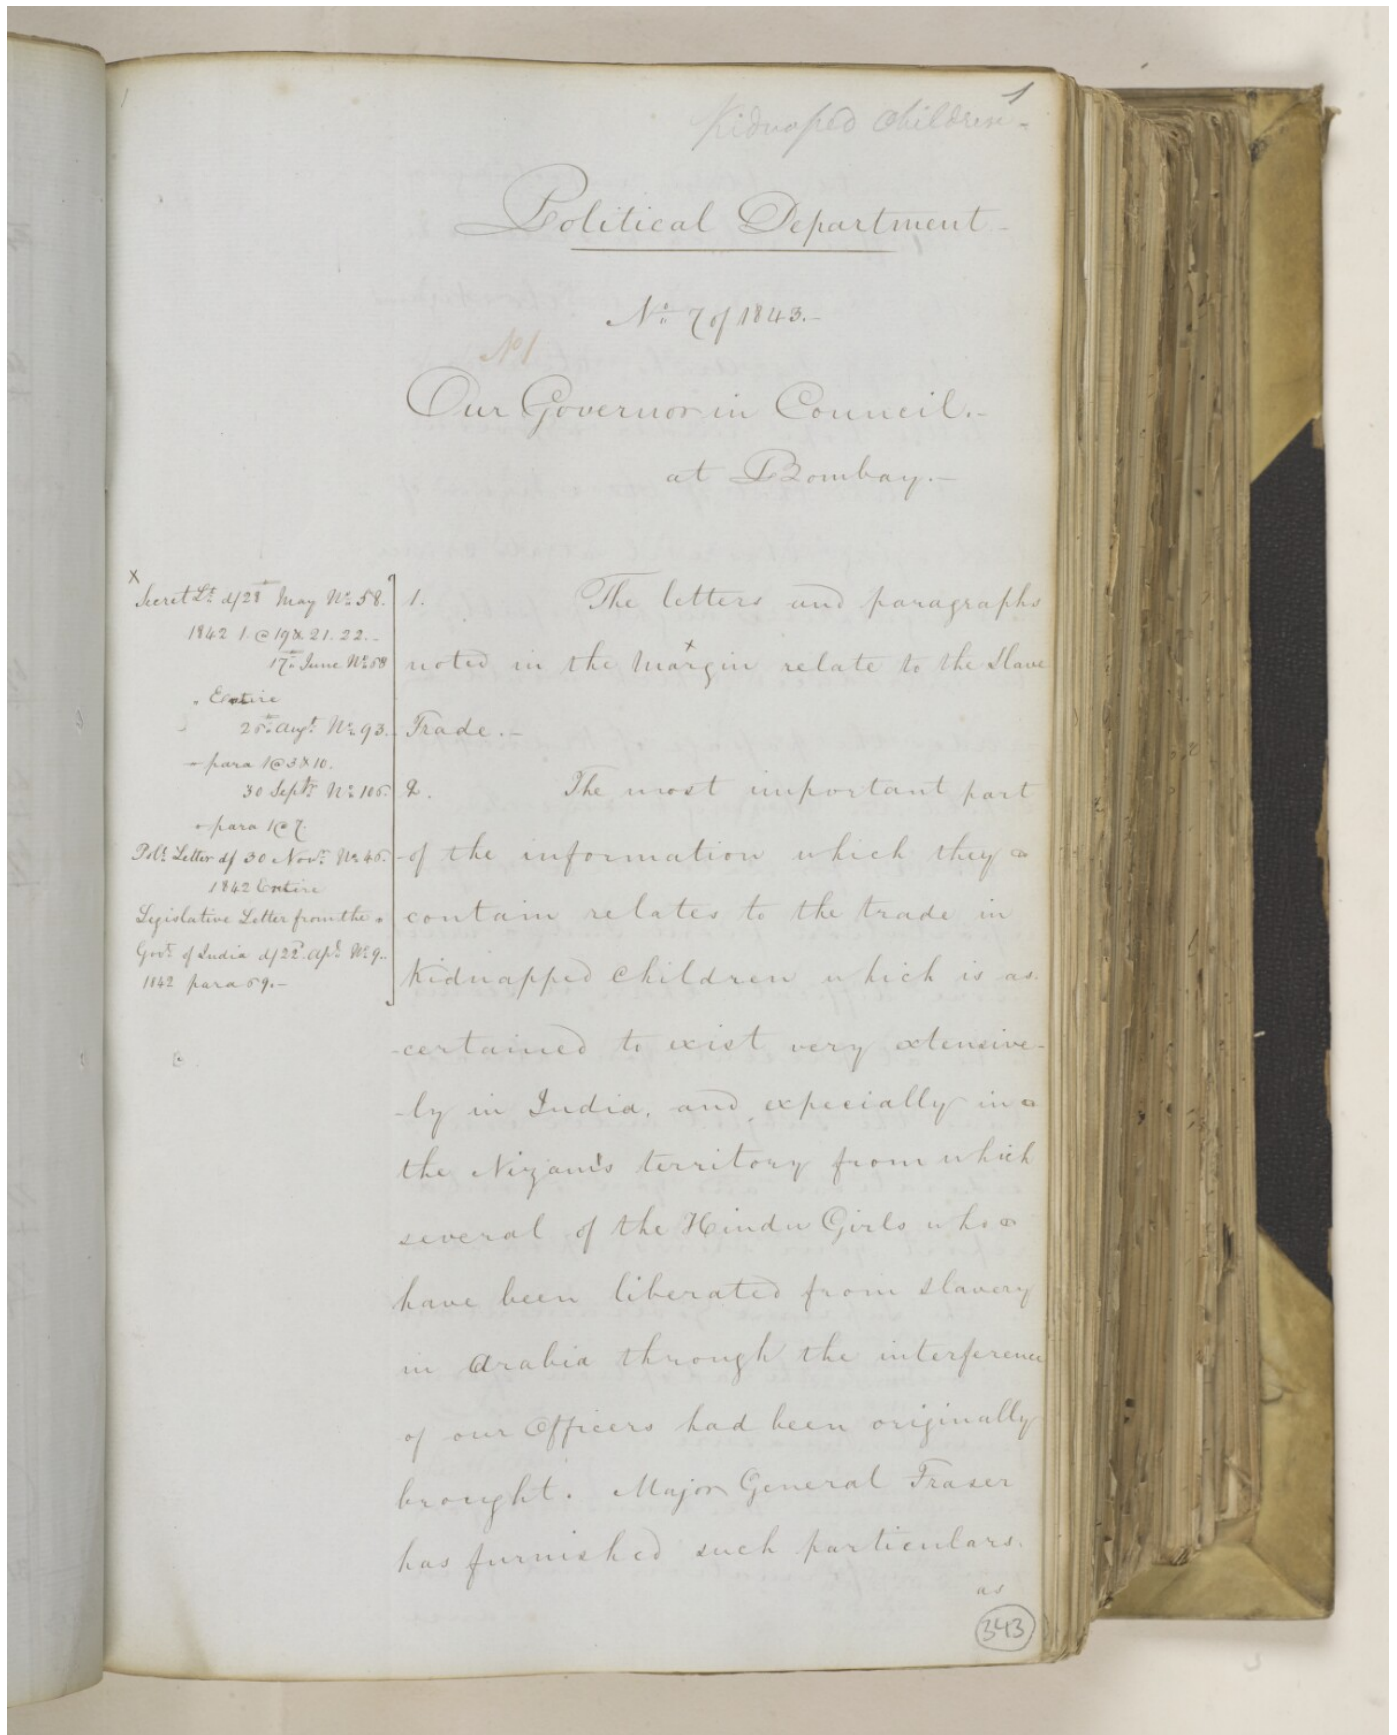 1
Kidnaped Children -
Political Department -
No. 7 of 1843. -
No 1
Our Governor in Council. -
at Bombay. -
x
Secret Lr. d/ 28th May No. 58.
1842 1 @ 19 & 21. 22. -
17th June No. 68
" Entire
25th Augt. No. 93.
- para 1 @ 3 & 10.
30 Septr. No. 106.
" para 1 @ 7.
Poll. Letter d/ 30 Novr. No. 46.
1842 Entire
Legislative Letter from the
Govt. of India d/ 22d. Apl. No. 9.
1842 para 59. -
1. The letters and paragraphs
noted in the Margin x relate to the Slave
Trade. -
2. The most important part
of the information which they
contain relates to the trade in
Kidnapped Children which is as-
-certained to exist very extensive-
-ly in India, and expecially in
the Nizam's territory from which
several of the Hindu Girls who
have been liberated from slavery
in Arabia through the interference
of our Officers had been originally
brought. Major General Fraser
has furnished such particulars.
as
343